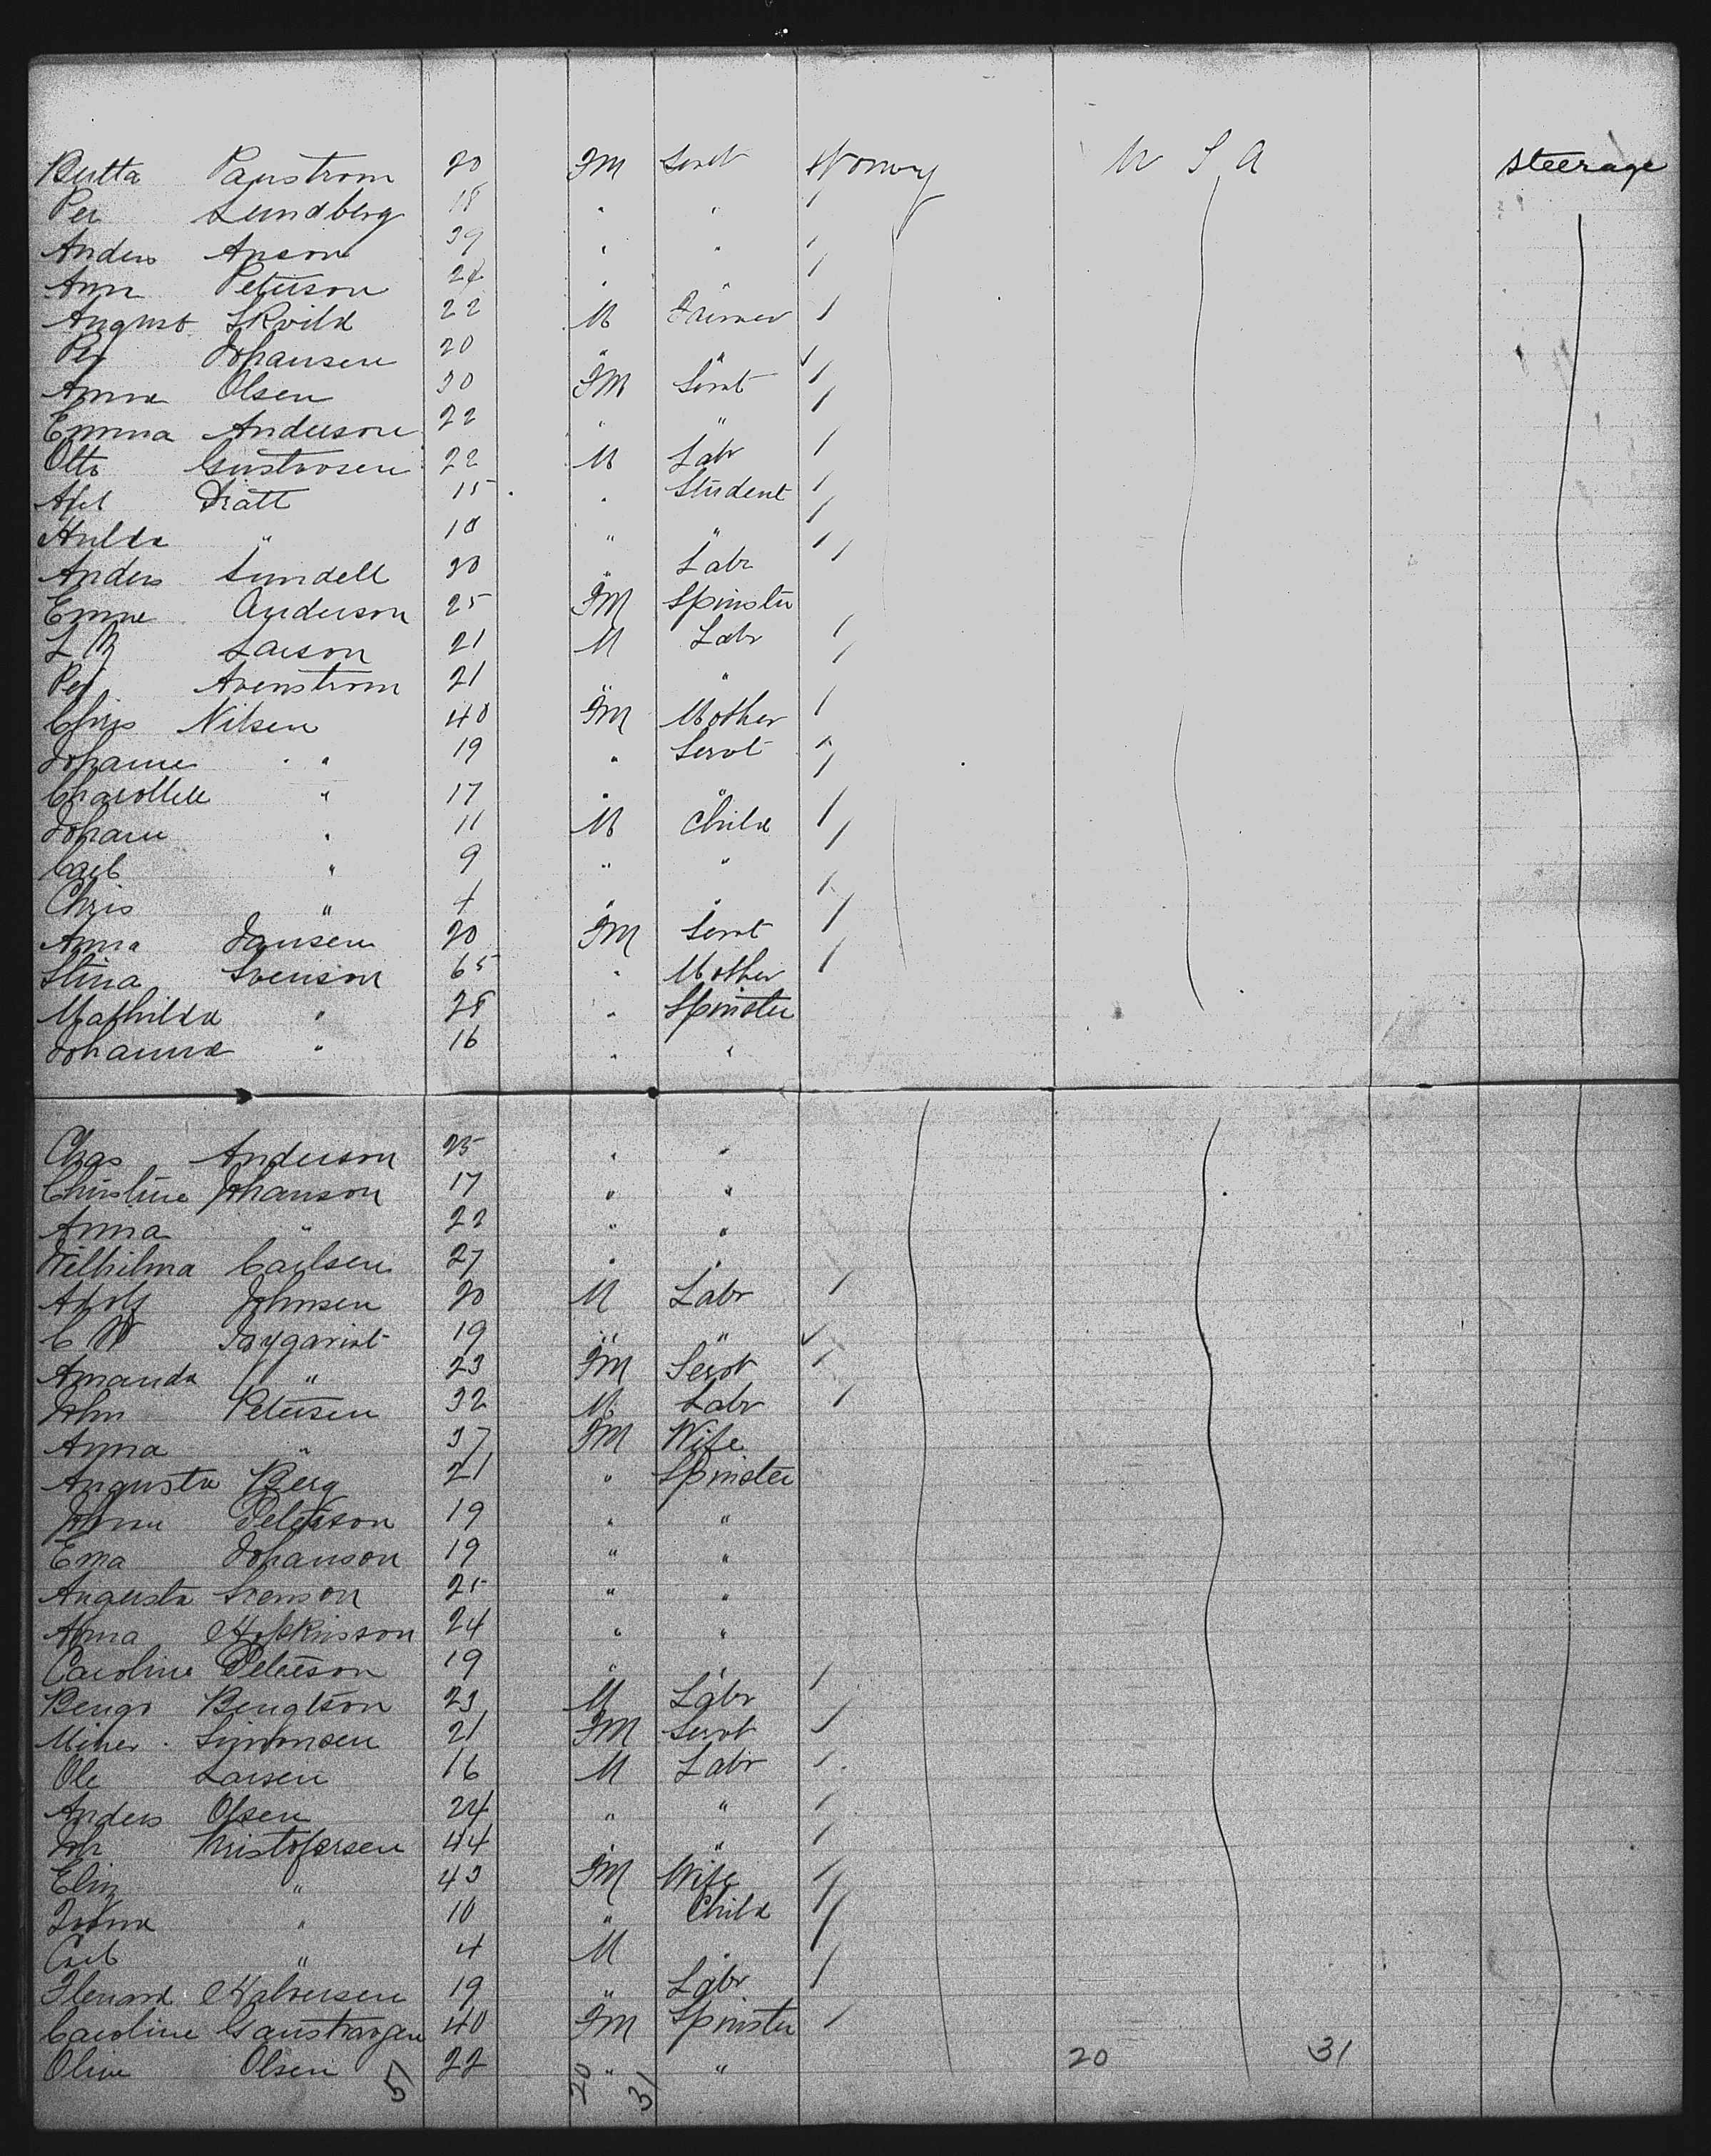 Butta Panstrom 20 FM Servt Norwy U S A Steerage
Per Lundberg 18 " "
Anders Anson 39 " "
Ann Peterson 24 " "
August Skoild 22 M Farmer
Per Johansen 20 " "
Anna Olsen 30 FM Servt
Emma Anderson 22 " "
Otto Gustavsen 22 M Labr
Axel Dratt 15 " Student
Hulda " 18 " "
Anders Lundell 20 " Labr
Emma Anderson 25 FM Spinster
L M Larson 21 M Labr
Per Avenstrom 21 " "
Chris Nilsen 40 FM Mother
Johanne " 19 " Servt
Charollette " 17 " "
Johann " 11 M Child
Carl " 9 " "
Chris " " "
Anna Jansen 20 FM Servt
Stina Svenson 65 " Mother
Mathilda " 28 " Spinster
Johanna " 16 " "
Chas Anderson 25 " "
Christine Johanson 17 " "
Anna " 22 " "
Wilhilma Carlsen 27 " "
Adolf Johnsen 20 M Labr
C W 19 " "
Amanda " 23 FM Servt
John Petersen 32 M Labr
Anna " 37 FM Wife
Augusta Berg 21 " Spinster
Peterson 19 " "
Ema Johanson 19 " "
Augusta Svenson 25 " "
Anna Hopkinsson 24 " "
Caroline Peterson 19 " "
Bengt Bengtson 23 M Labr
Miner Simonsen 21 FM Servt
Ole Larsen 16 M Labr
Anders Olsen 24 " "
Joh Kristofersen 44 " "
Elin " 43 FM Wife
" 10 " Child
Carl " 4 M "
Halversen 19 " Labr
Caroline 40 FM Spinster
Olive Olsen 22 " " 20 31
51 20 31